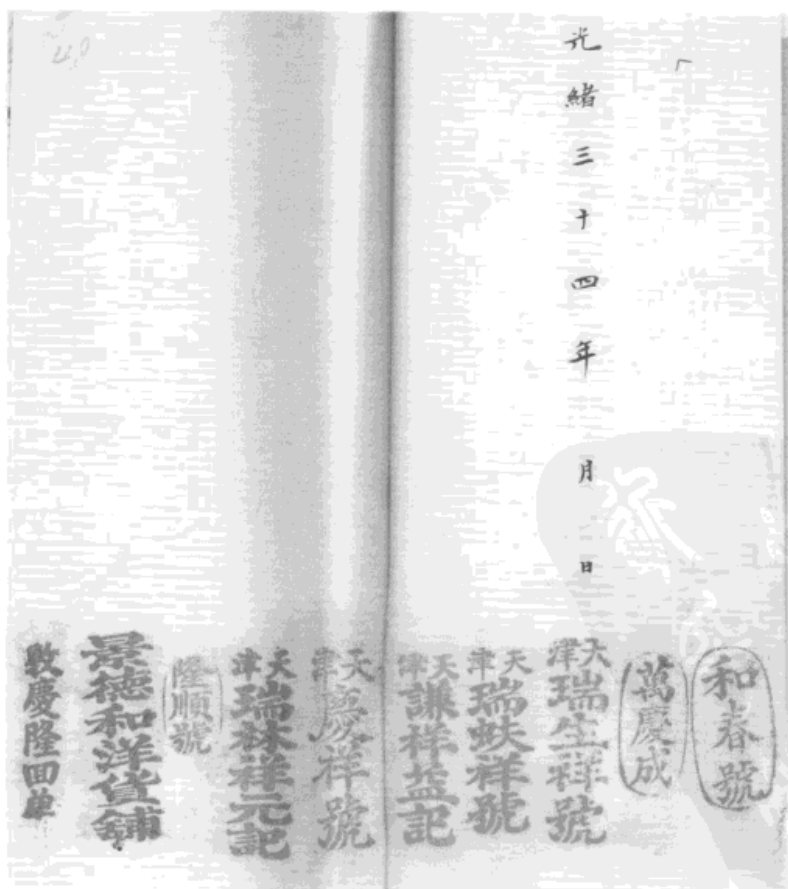 光緒三十四年 月 日
和春號
萬慶成
天津瑞生祥號
天津瑞蚨祥號
天津謙祥益記
天津慶祥號
天津瑞林祥元記
隆順號
景德和洋貨鋪
敦慶隆回單